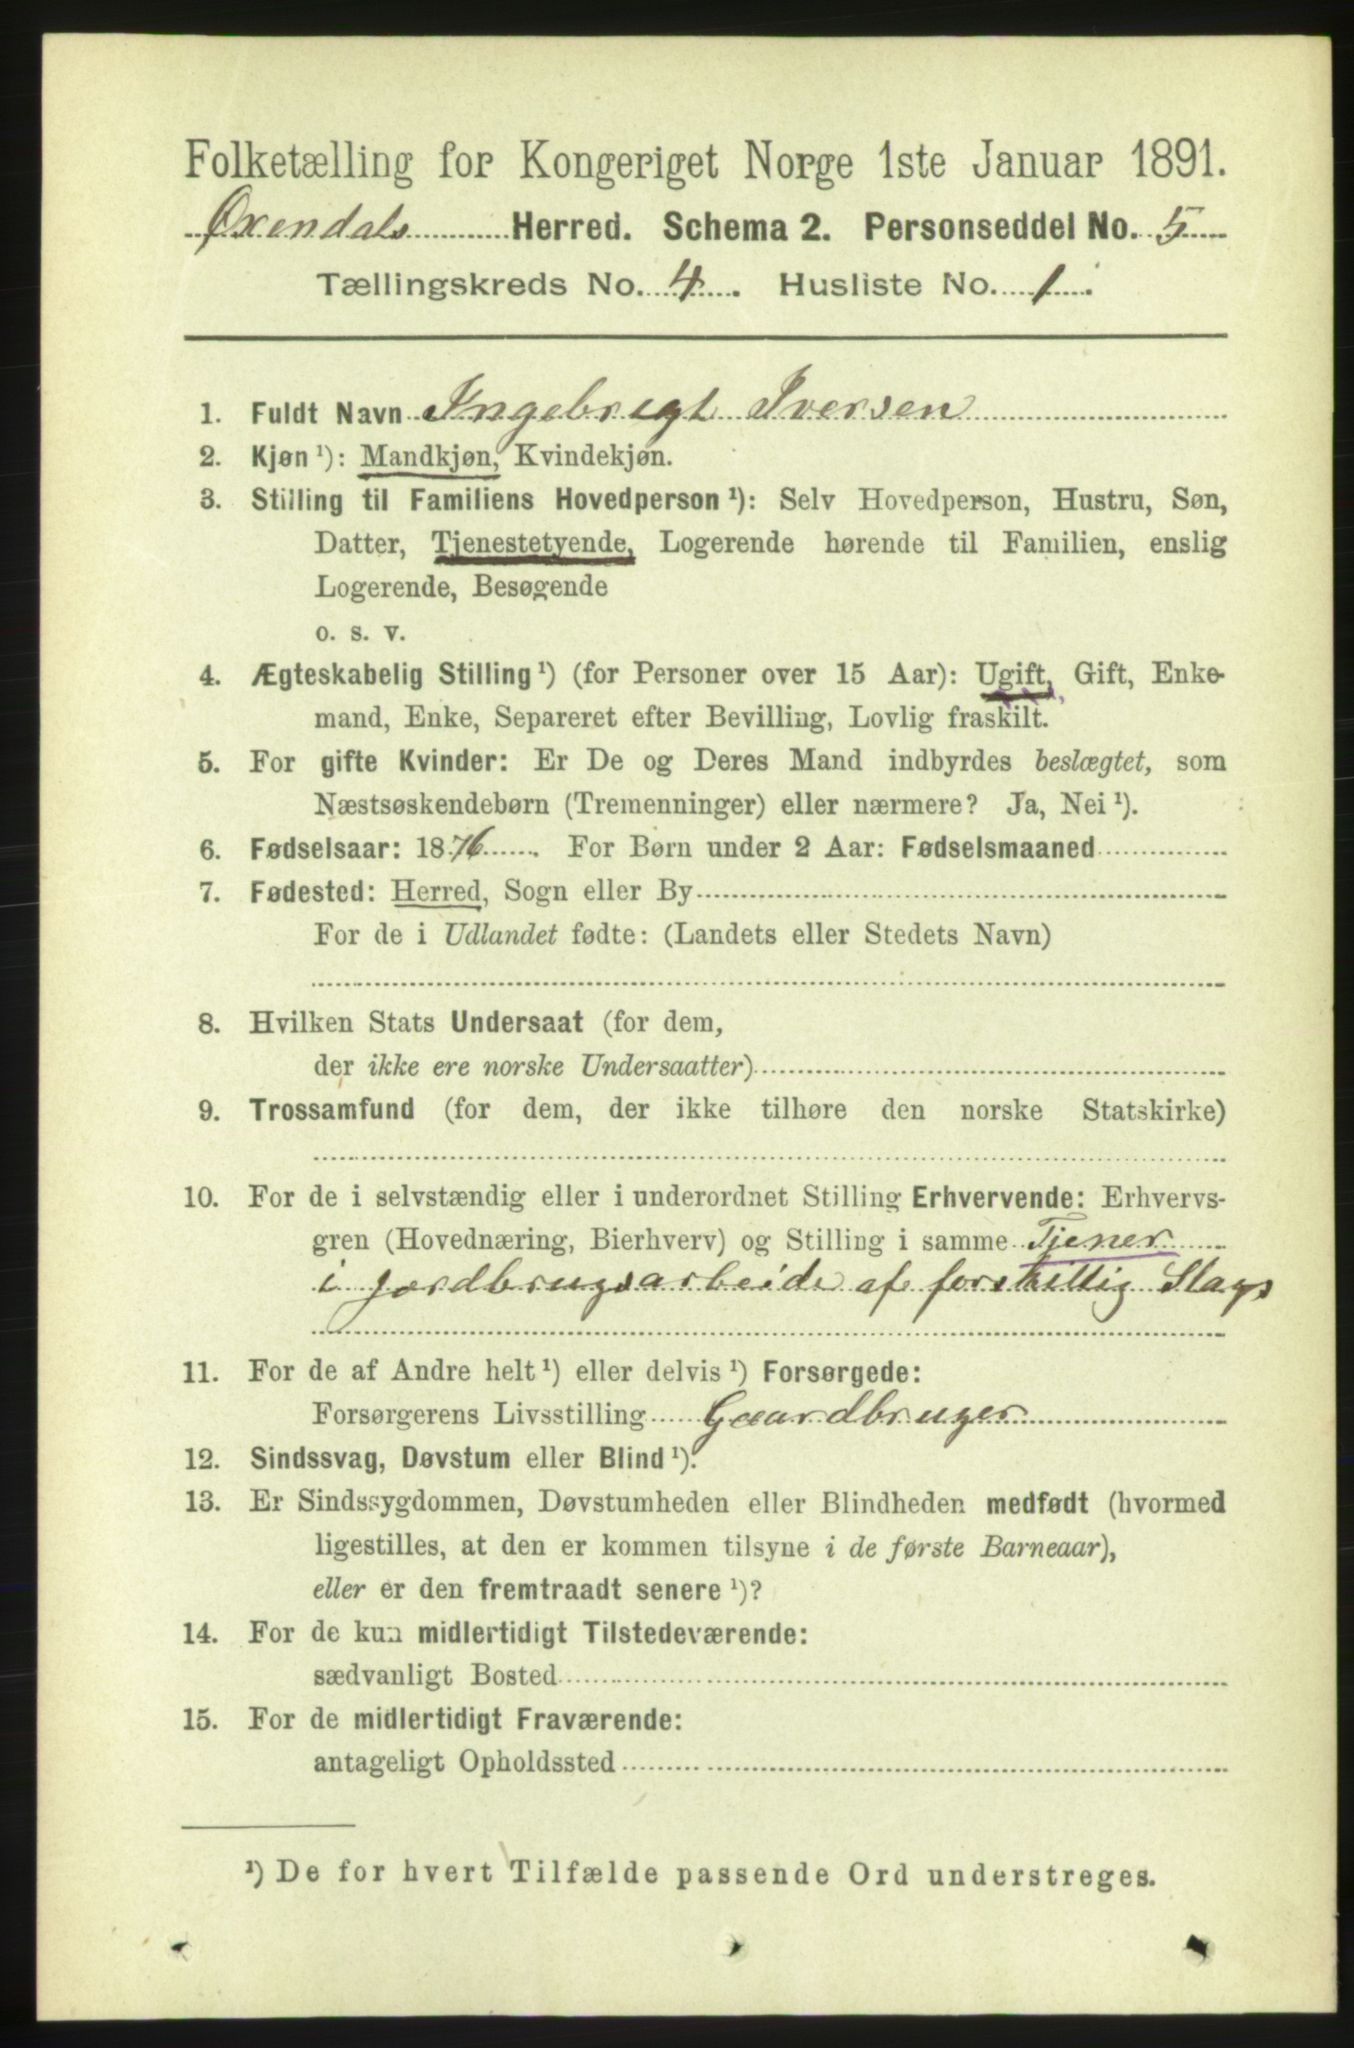 Folketælling for Kongeriget Norge 1ste Januar 1891.
Øxendals Herred. Schema 2. Personseddel No. 5
Tællingskreds No. 4. Husliste No. 1.
1. Fuldt Navn Ingebrigt Iversen
2. Kjøn ¹): Mandkjøn, Kvindekjøn.
3. Stilling til Familiens Hovedperson ¹): Selv Hovedperson, Hustru, Søn,
Datter, Tjenestetyende, Logerende hørende til Familien, enslig
Logerende, Besøgende
o. s. v.
4. Ægteskabelig Stilling ¹) (for Personer over 15 Aar): Ugift, Gift, Enke-
mand, Enke, Separeret efter Bevilling, Lovlig fraskilt.
5. For gifte Kvinder: Er De og Deres Mand indbyrdes beslægtet, som
Næstsøskendebørn (Tremenninger) eller nærmere? Ja, Nei ¹).
6. Fødselsaar: 1876. For Børn under 2 Aar: Fødselsmaaned
7. Fødested: Herred, Sogn eller By
For de i Udlandet fødte: (Landets eller Stedets Navn)
8. Hvilken Stats Undersaat (for dem,
der ikke ere norske Undersaatter)
9. Trossamfund (for dem, der ikke tilhøre den norske Statskirke)
10. For de i selvstændig eller i underordnet Stilling Erhvervende: Erhvervs-
gren (Hovednæring, Bierhverv) og Stilling i samme Tjener
i Jordbrugsarbeide af forskillig Slags
11. For de af Andre helt ¹) eller delvis ¹) Forsørgede:
Forsørgerens Livsstilling Gaardbruger
12. Sindssvag, Døvstum eller Blind ¹).
13. Er Sindssygdommen, Døvstumheden eller Blindheden medfødt (hvormed
ligestilles, at den er kommen tilsyne i de første Barneaar),
eller er den fremtraadt senere ¹)?
14. For de kun midlertidigt Tilstedeværende:
sædvanligt Bosted
15. For de midlertidigt Fraværende:
antageligt Opholdssted
¹) De for hvert Tilfælde passende Ord understreges.